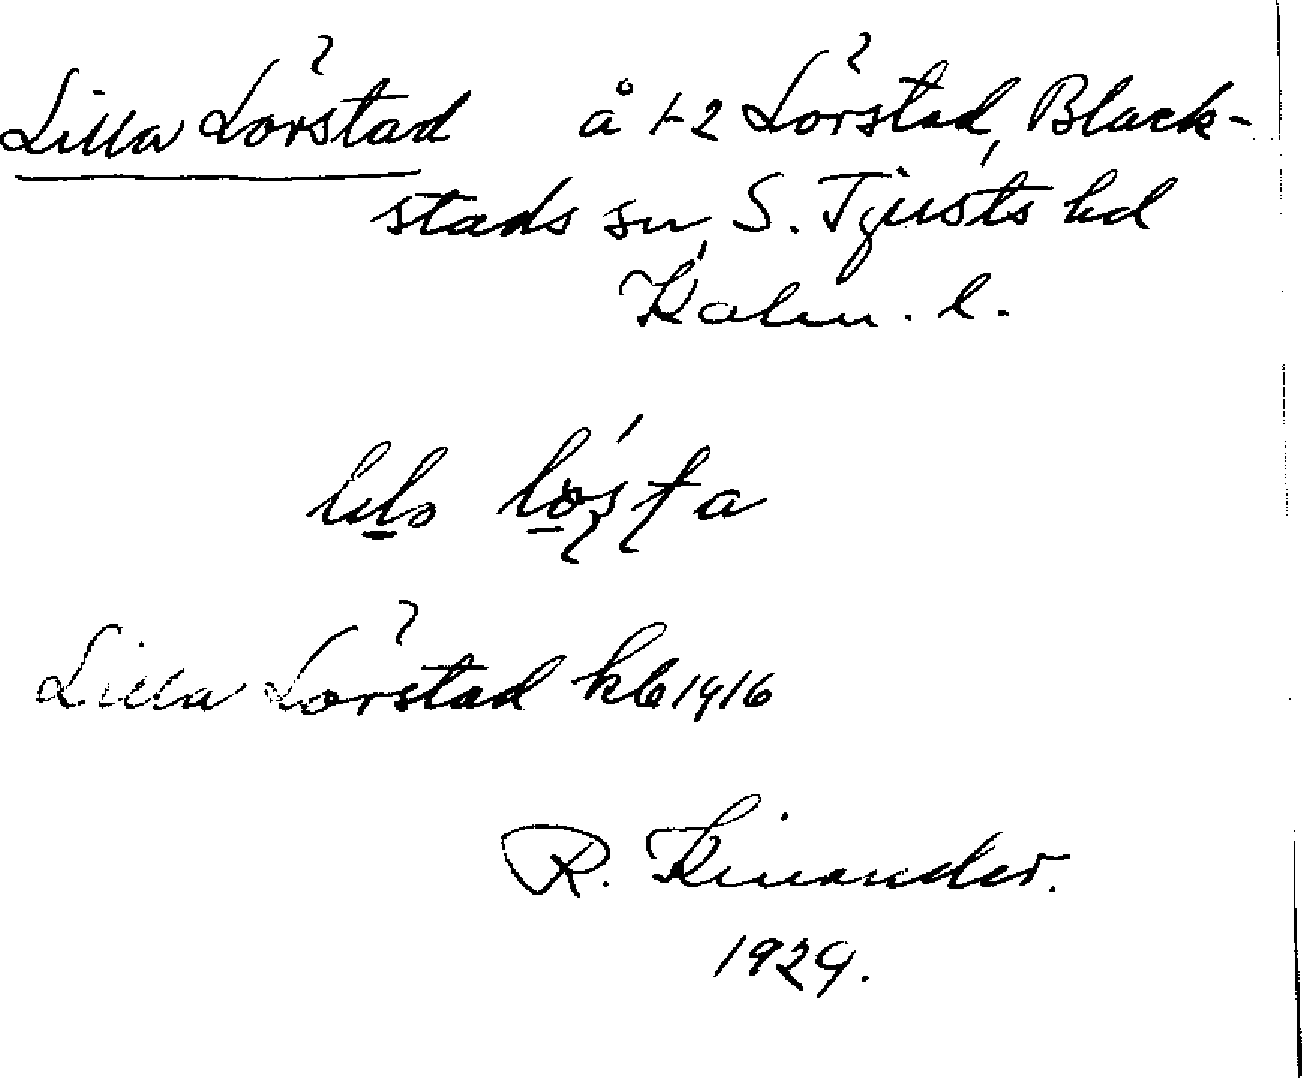 Lilla Lörstad å 1-2 Lörstad, Black-
stads sn, S. Tjusts hd
Kalm. l.
Lilla Lörstad kb 1916
R. Kinander.
1929.